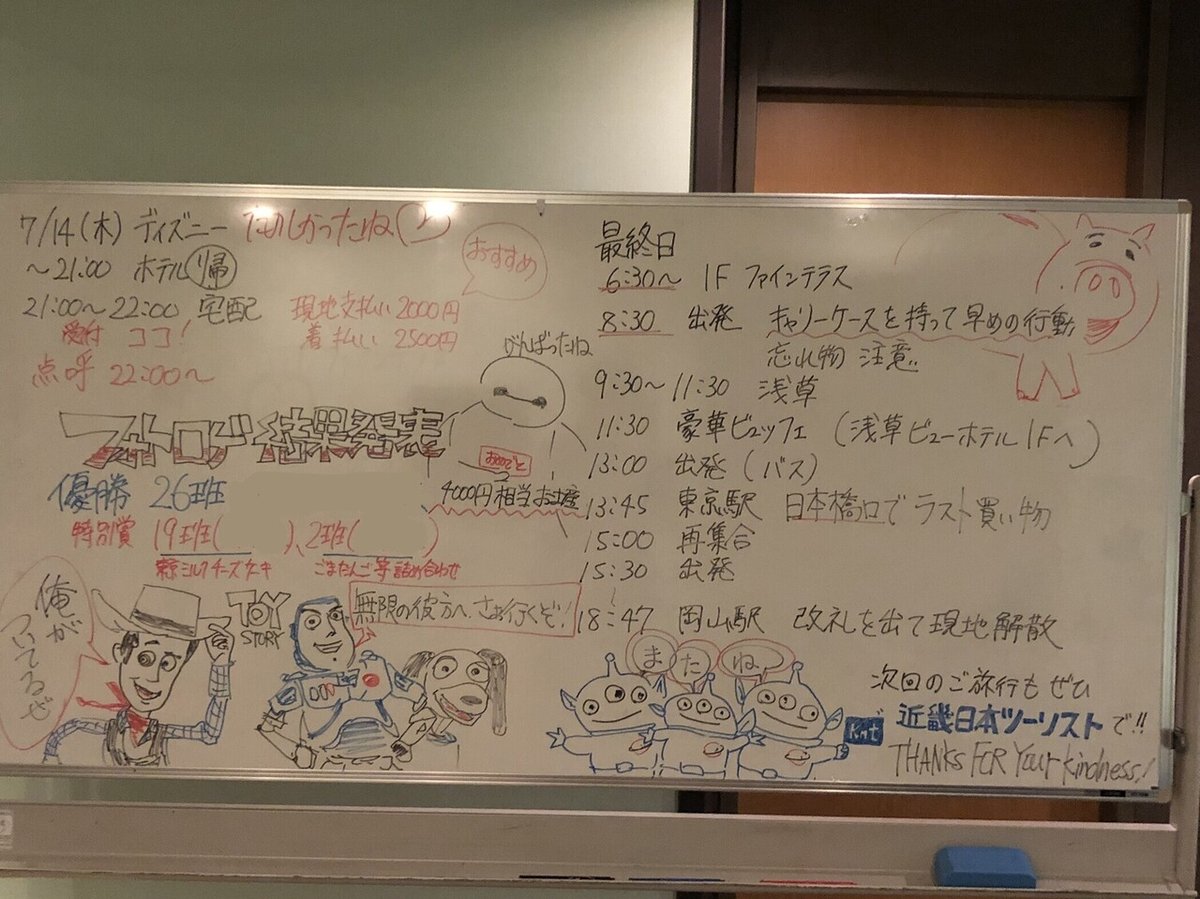 7/14(木) ディズニー たのしかったね
おすすめ
～21:00 ホテル帰
21:00～22:00 宅配 現地支払い 2000円
受付 ココ! 着払い 2500円
点呼 22:00～
がんばったね
フォトロゲ 結果発表
おめでとう
優勝 26班
4000円相当お土産
特別賞 19班( )、2班( )
東京ミルクチーズケーキ ごまたまご等詰め合わせ
俺が
ついてるぜ
TOY
STORY
無限の彼方へ、さあ行くぞ!
最終日
6:30～ 1F ファインテラス
8:30 出発 キャリーケースを持って早めの行動
忘れ物 注意
9:30～11:30 浅草
11:30 豪華ビュッフェ (浅草ビューホテル1Fへ)
13:00 出発(バス)
13:45 東京駅 日本橋口でラスト買い物
15:00 再集合
15:30 出発
18:47 岡山駅 改札を出て現地解散
またね
次回のご旅行もぜひ
KNT 近畿日本ツーリストで!!
THANKS FOR Your kindness!